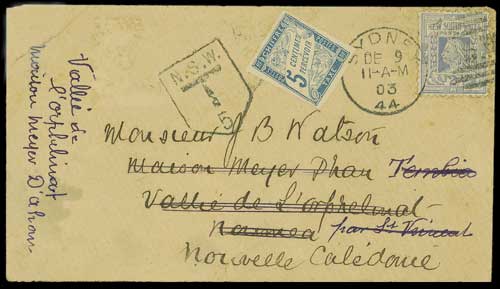 Vallée de
l'orphelinat
N.S.W.
T
5
CHIFFRE
POSTES
5
CENTIMES
A
PERCEVOIR
TAXE
SYDNEY
DE 9
11-A-M
03
44
NEW SOUTH WALES
Monsieur J B Watson
Maison Meyer Dhan Tembia
Vallié de L'orphelinat
Noumea par St Vincent
Nouvelle Calédonie